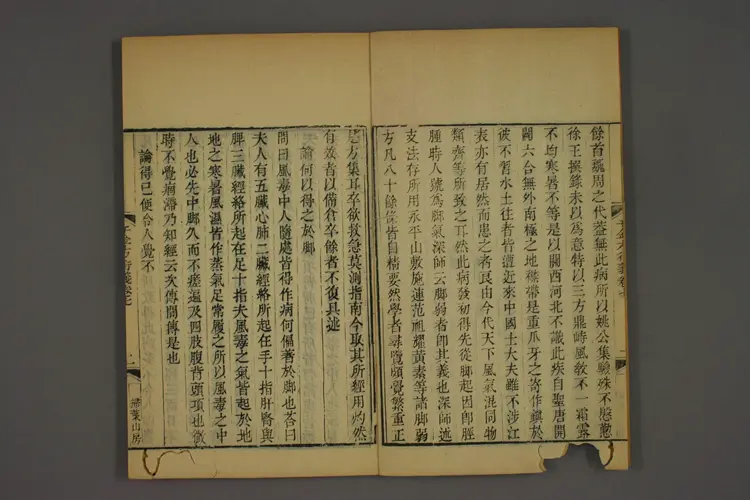 餘首魏周之代蓋無此病所以姚公集驗殊不慇懃
徐王撰錄未以爲意特以三方鼎峙風敎不一霜露
不均寒暑不等是以關西河北不識此疾自聖唐開
闢六合無外南極之地襟帶是重爪牙之寄作鎭於
彼不習水土往者皆遭近來中國士大夫雖不涉江
表亦有居然而患之者良由今代天下風氣混同物
類齊等所致之耳然此病發初得先從脚起因卽脛
腫時人號爲脚氣深師云脚弱者卽其義也深師述
支法存所用永平山敷施連范祖耀黃素等諸脚弱
方凡八十餘條皆自精要然學者尋覽頗覺繁重正
是方集耳卒欲救急莫測指南今取其所經用灼然
有效者以備倉卒餘者不復具述
論何以得之於脚
問曰風毒中人隨處皆得作病何偏著於脚也荅曰
夫人有五臟心肺二臟經絡所起在手十指肝腎與
脾三臟經絡所起在足十指夫風毒之氣皆起於地
地之寒暑風濕皆作蒸氣足常履之所以風毒之中
人也必先中脚久而不瘥遍及四肢腹背頭項也微
時不覺痼滯乃知經云次傳間傳是也
論得已便令人覺不
千金方衍義卷七
掃葉山房